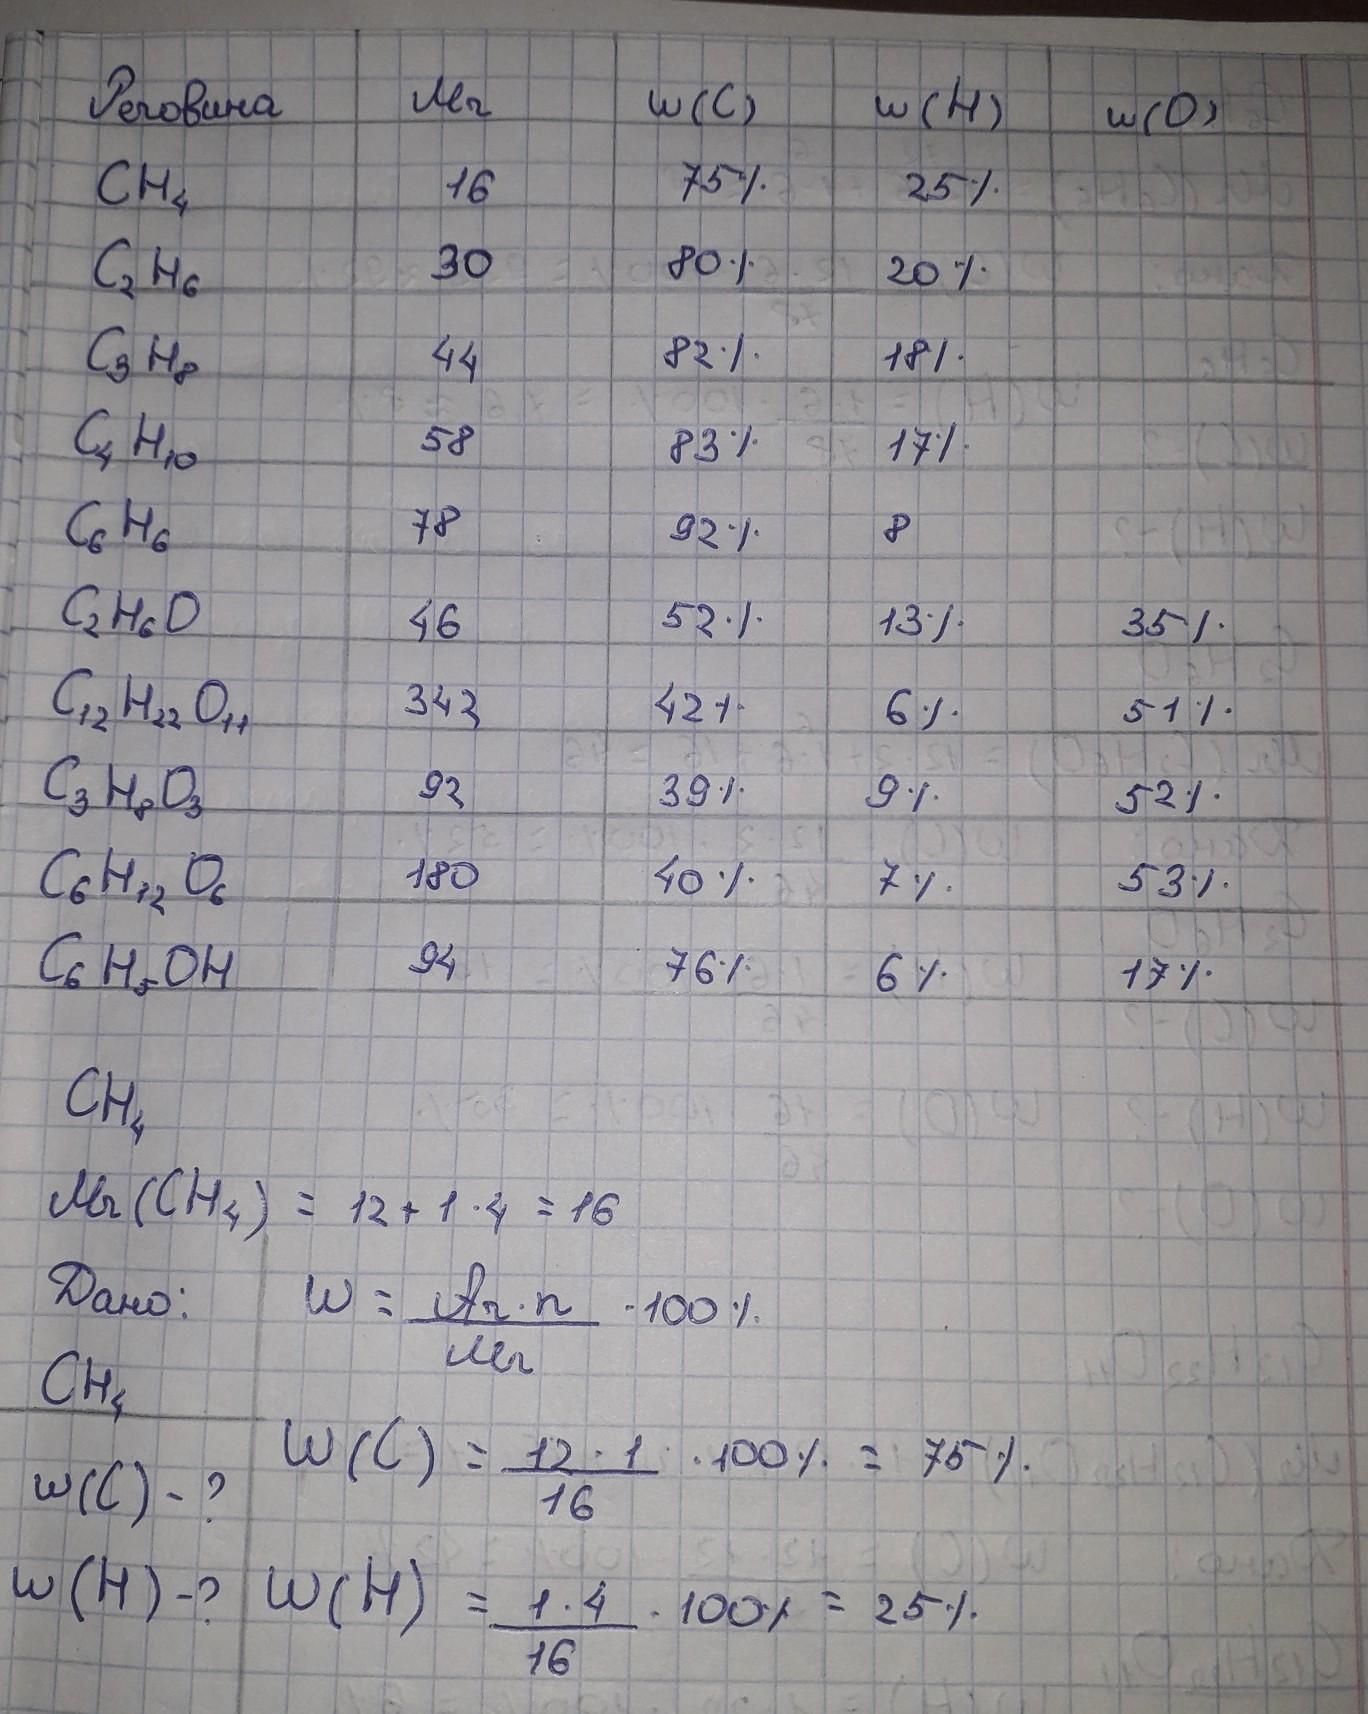 Речовина Mr w(C) w(H) w(O)
CH₄ 16 75% 25%
C₂H₆ 30 80% 20%
C₃H₈ 44 82% 18%
C₄H₁₀ 58 83% 17%
C₆H₆ 78 92% 8
C₂H₆O 46 52% 13% 35%
C₁₂H₂₂O₁₁ 342 42% 6% 51%
C₃H₈O₃ 92 39% 9% 52%
C₆H₁₂O₆ 180 40% 7% 53%
C₆H₅OH 94 76% 6% 17%
CH₄
Mr(CH₄) = 12 + 1·4 = 16
Дано: W = Ar·n / Mr · 100%
CH₄
w(C) - ? W(C) = 12·1 / 16 · 100% = 75%
w(H) - ? W(H) = 1·4 / 16 · 100% = 25%